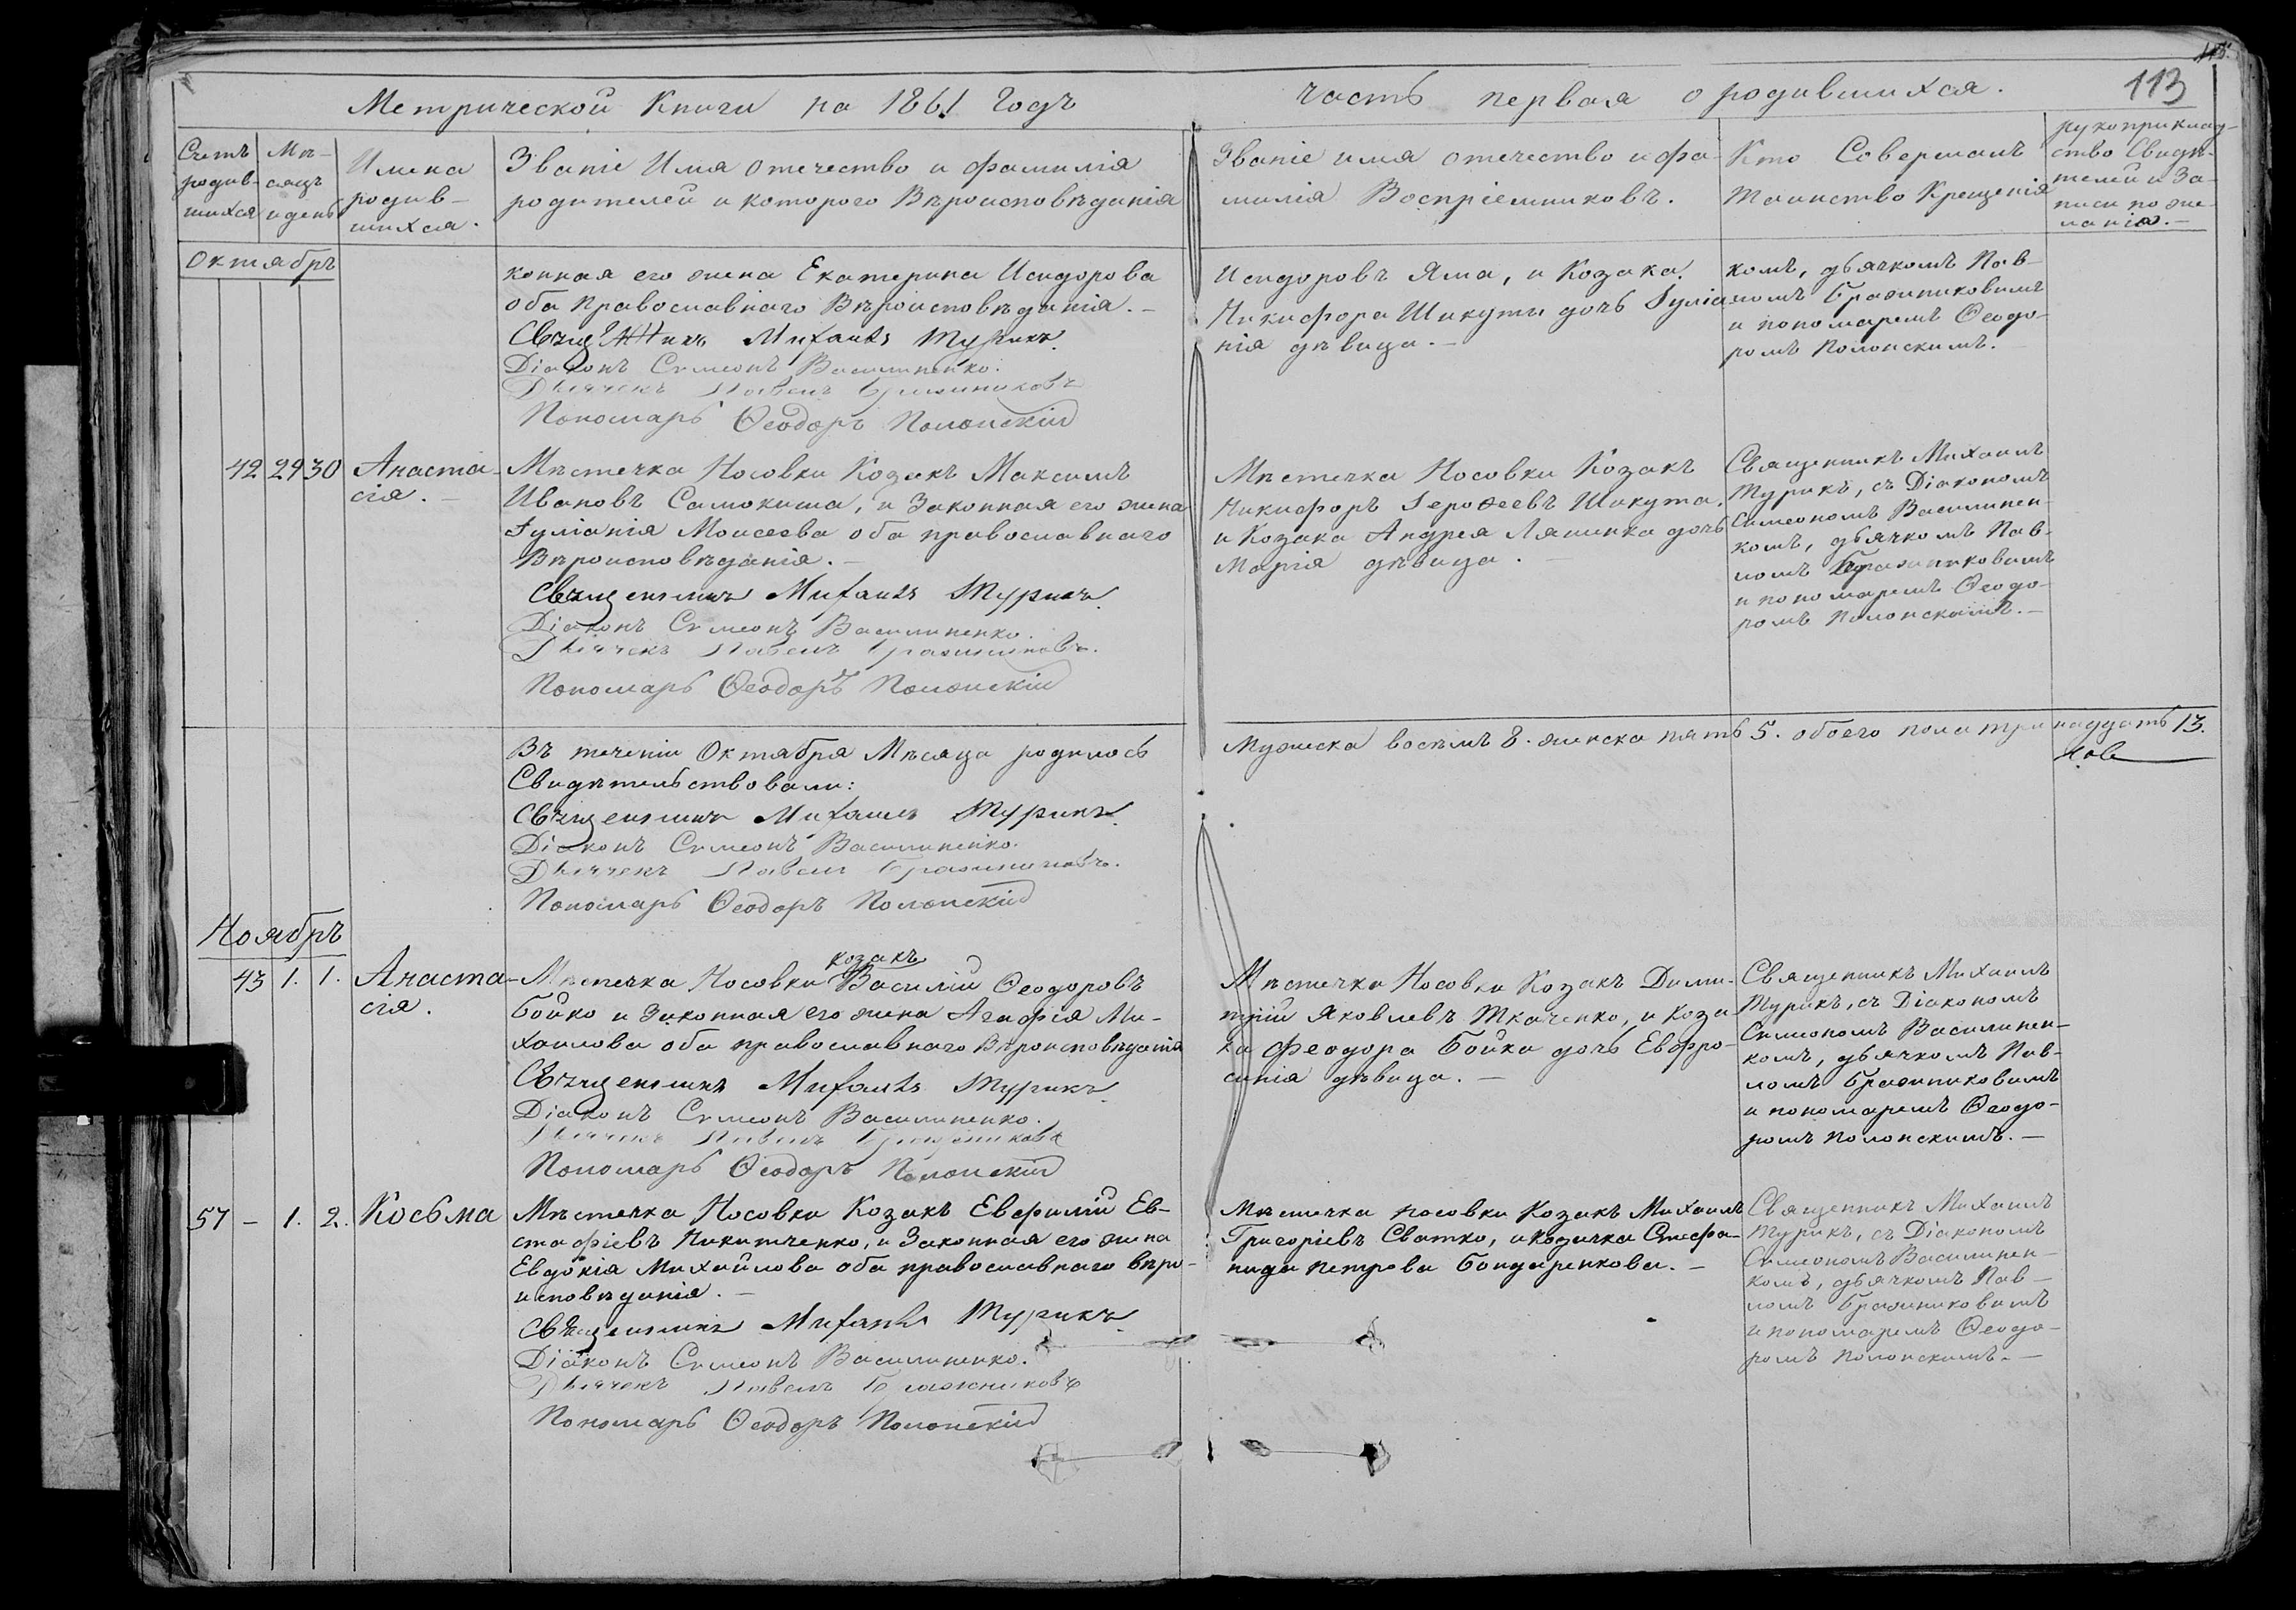 115.
113
Метрической Книги на 1861 Годъ часть первая о родившихся.
Счетъ родив-шихся
Мѣ-сяцъ и день
Имена родив-шихся.
Званіе Имя отечество и фамилія
родителей и которого Вѣроисповѣданія
Званіе имя отечество и фа-
милія Воспріемниковъ.
Кто Совершалъ
Таинство Крещенія
рукоприклад-
ство Свидѣ-
телей и За-
писи по же-
ланію.-
Октябрь
конная его жена Екатерина Исидорова
оба Православнаго Вѣроисповѣданія.-
Михаилъ Турикъ
Діаконъ Сѵмеонъ Василиненко.
Дьячекъ Павелъ Бражниковъ
Пономарь Ѳеодоръ Полонскій
Исидоровъ Яма, и Козака
Никифора Шикуты дочь Іуліа
нія дѣвица.-
комъ, дьячкомъ Пав-
ломъ Бражниковымъ
и пономаремъ Ѳеодо-
ромъ Полонскимъ.
42 29 30 Анаста-
сія.-
Мѣстечка Носовки Козакъ Максимъ
Ивановъ Самокиша, и Законная его жена
Іуліанія Моисеева оба православнаго
Вѣроисповѣданія.-
Священникъ Михаилъ Турикъ
Діаконъ Сѵмеонъ Василиненко.
Дьячекъ Павелъ Бражниковъ.
Пономарь Ѳеодоръ Полонскій
Мѣстечка Носовки Козакъ
Никифоръ Іероѳеевъ Шикута,
и Козака Андрея Ляшенка дочь
Марія дѣвица.-
Священникъ Михаилъ
Турикъ, съ Діакономъ
Сѵмеономъ Василинен-
комъ, дьячкомъ Пав-
ломъ Бражниковымъ
и пономаремъ Ѳеодо-
ромъ Полонскимъ.-
Въ теченіи Октября Мѣсяца родилось
Мужеска восемь 8. женска пять 5. обоего пола тринадцать 13.
Свидѣтельствовали:
Священникъ Михаилъ Турикъ
Діаконъ Сѵмеонъ Василиненко.
Дьячекъ Павелъ Бражниковъ.
Пономарь Ѳеодоръ Полонскій
Ноябрь
43 1. 1. Анаста-
сія.
козакъ
Мѣстечка Носовки Василій Ѳеодоровъ
Бойко и Законная его жена Агафія Ми-
хаилова оба православнаго Вѣроисповѣданія
Священникъ Михаилъ Турикъ
Діаконъ Сѵмеонъ Василиненко.
Дьячекъ Павелъ Бражниковъ
Пономарь Ѳеодоръ Полонскій
Мѣстечка Носовки Козакъ Дими-
трій Яковлевъ Ткаченко, и Коза-
ка Феодора Бойка дочь Евфро-
синія дѣвица.-
Священникъ Михаилъ
Турикъ, съ Діакономъ
Сѵмеономъ Василинен-
комъ, дьячкомъ Пав-
ломъ Бражниковымъ
и пономаремъ Ѳеодо-
ромъ Полонскимъ.-
57 - 1. 2. Косьма
Мѣстечка Носовки Козакъ Евфимій Ев-
стафіевъ Никитченко, и Законная его жена
Евдокія Михайлова оба православнаго вѣро-
исповѣданія.-
Священникъ Михаилъ Турикъ
Діаконъ Сѵмеонъ Василиненко.
Дьячекъ Павелъ Бражниковъ
Пономарь Ѳеодоръ Полонскій
Мѣстечка Носовки Козакъ Михаилъ
Григоріевъ Сватко, и козачка Стефа-
нида Петрова Бондаренкова.-
Священникъ Михаилъ
Турикъ, съ Діакономъ
Сѵмеономъ Василинен-
комъ, дьячкомъ Пав-
ломъ Бражниковымъ
и пономаремъ Ѳеодо-
ромъ Полонскимъ.-